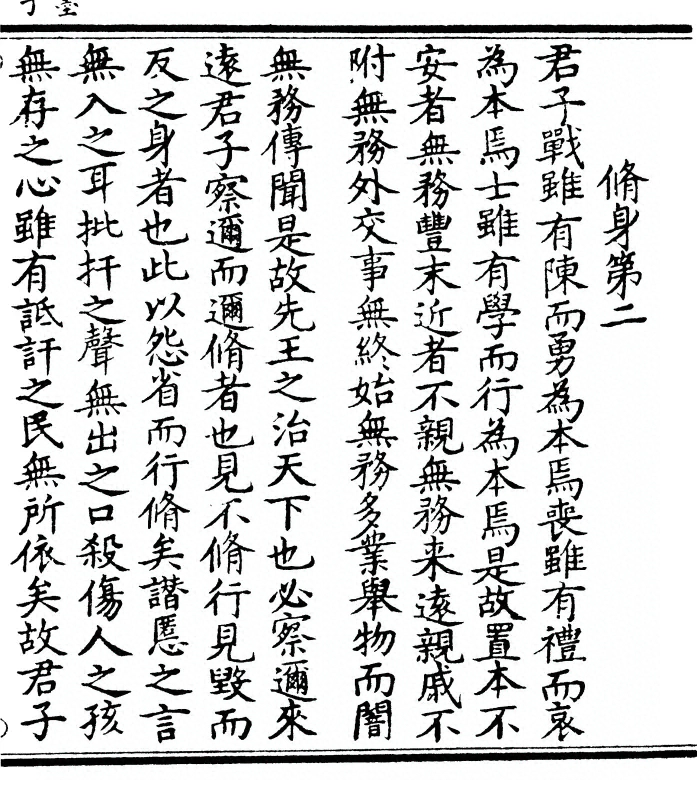 脩身第二
君子戰雖有陳而勇為本焉喪雖有禮而哀
為本焉士雖有學而行為本焉是故置本不
安者無務豐末近者不親無務来逺親戚不
附無務外交事無終始無務多業舉物而闇
無務愽聞是故先王之治天下也必察邇來
逺君子察邇而邇脩者也見不脩行見毀而
反之身者也此以怨省而行脩矣譖慝之言
無入之耳批扞之聲無出之口殺傷人之孩
無存之心雖有詆訐之民無所依矣故君子